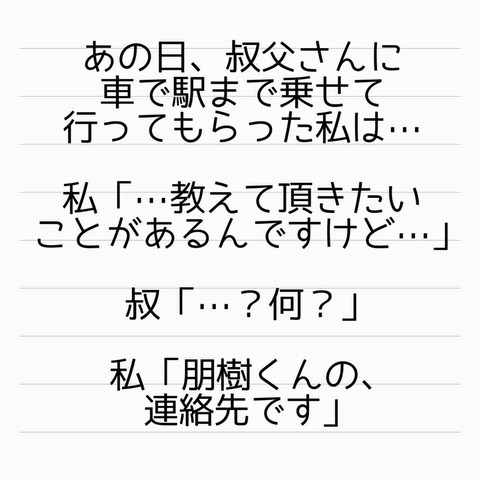 あの日、叔父さんに
車で駅まで乗せて
行ってもらった私は…
私「…教えて頂きたい
ことがあるんですけど…」
叔「…？何？」
私「朋樹くんの、
連絡先です」